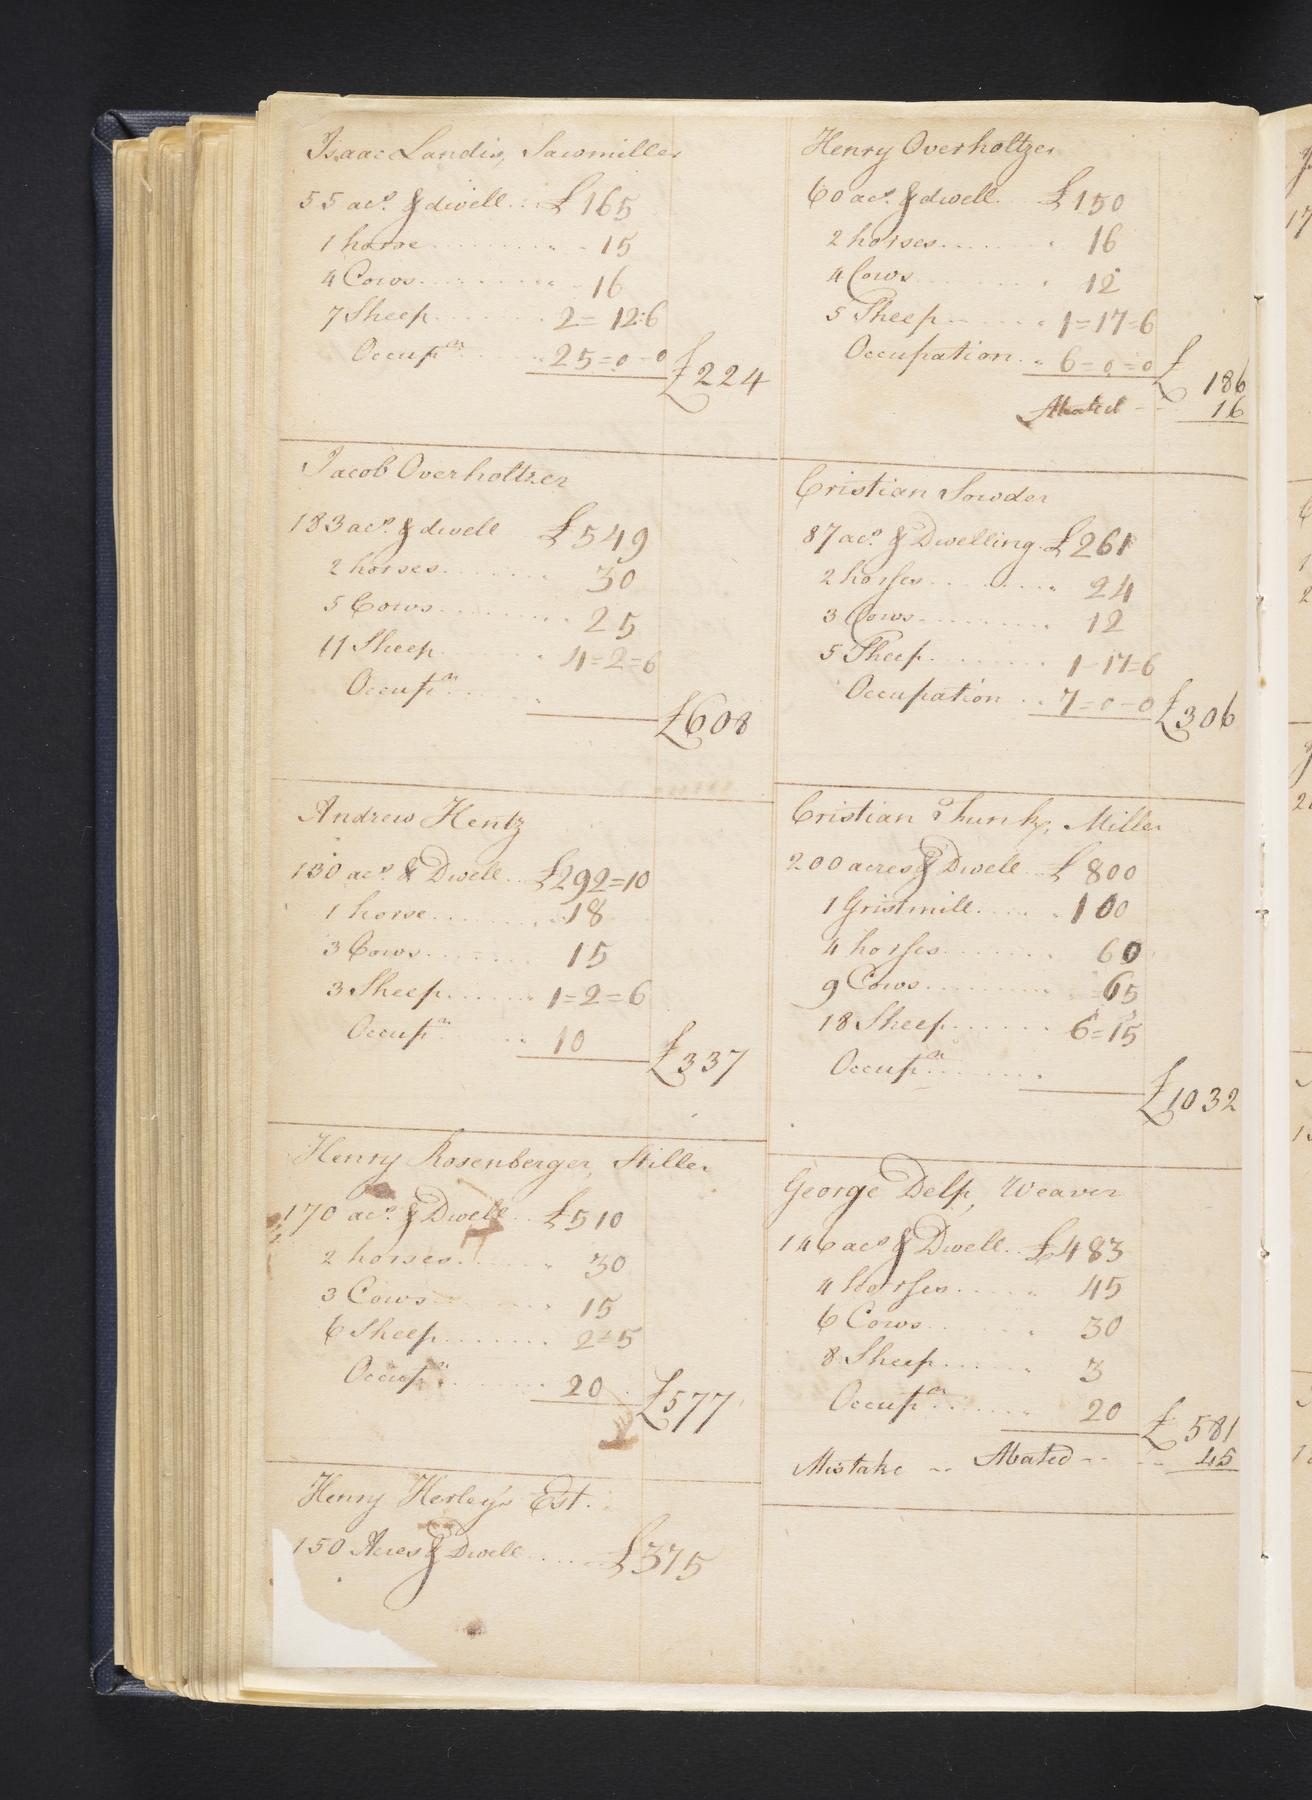 Isaac Landis, Sawmiller
55 acs. & dwell... £165
1 horse.......... 15
4 Cows.......... 16
7 Sheep........ 2=12:6
Occupn...... 25=0-0 £224
Jacob Overholtzer
183 acs. & dwell £549
2 horses........ 30
5 Cows......... 25
11 Sheep........ 4=2=6
Occupn......
£608
Andrew Hentz
130 acs. & Dwell.. £292=10
1 horse......... 18
3 Cows......... 15
3 Sheep........ 1=2=6
Occupn...... 10 £337
Henry Rosenberger, Stiller
170 acs. & Dwell.. £510
2 horses........ 30
3 Cows......... 15
6 Sheep........ 2=5
Occupn....... 20 £577
Henry Herley's Est.
150 Acres & Dwell.... £375
Henry Overholtzer
60 acs. & dwell... £150
2 horses....... 16
4 Cows......... 12
5 Sheep....... 1=17=6
Occupation.. 6=0=0 £186
Abated -- 16
Cristian Sowder
87 acs. & Dwelling £261
2 horses......... 24
3 Cows.......... 12
5 Sheep........ 1-17=6
Occupation... 7=0-0 £306
Cristian Miller
200 acres & Dwell.. £800
1 Gristmill..... 100
4 horses........ 60
9 Cows......... 65
18 Sheep...... 6=15
Occupn......
£1032
George Delp, Weaver
146 acs & Dwell.. £483
4 horses...... 45
6 Cows........ 30
8 Sheep...... 3
Occupn...... 20 £581
Mistake -- Abated -- -- 45